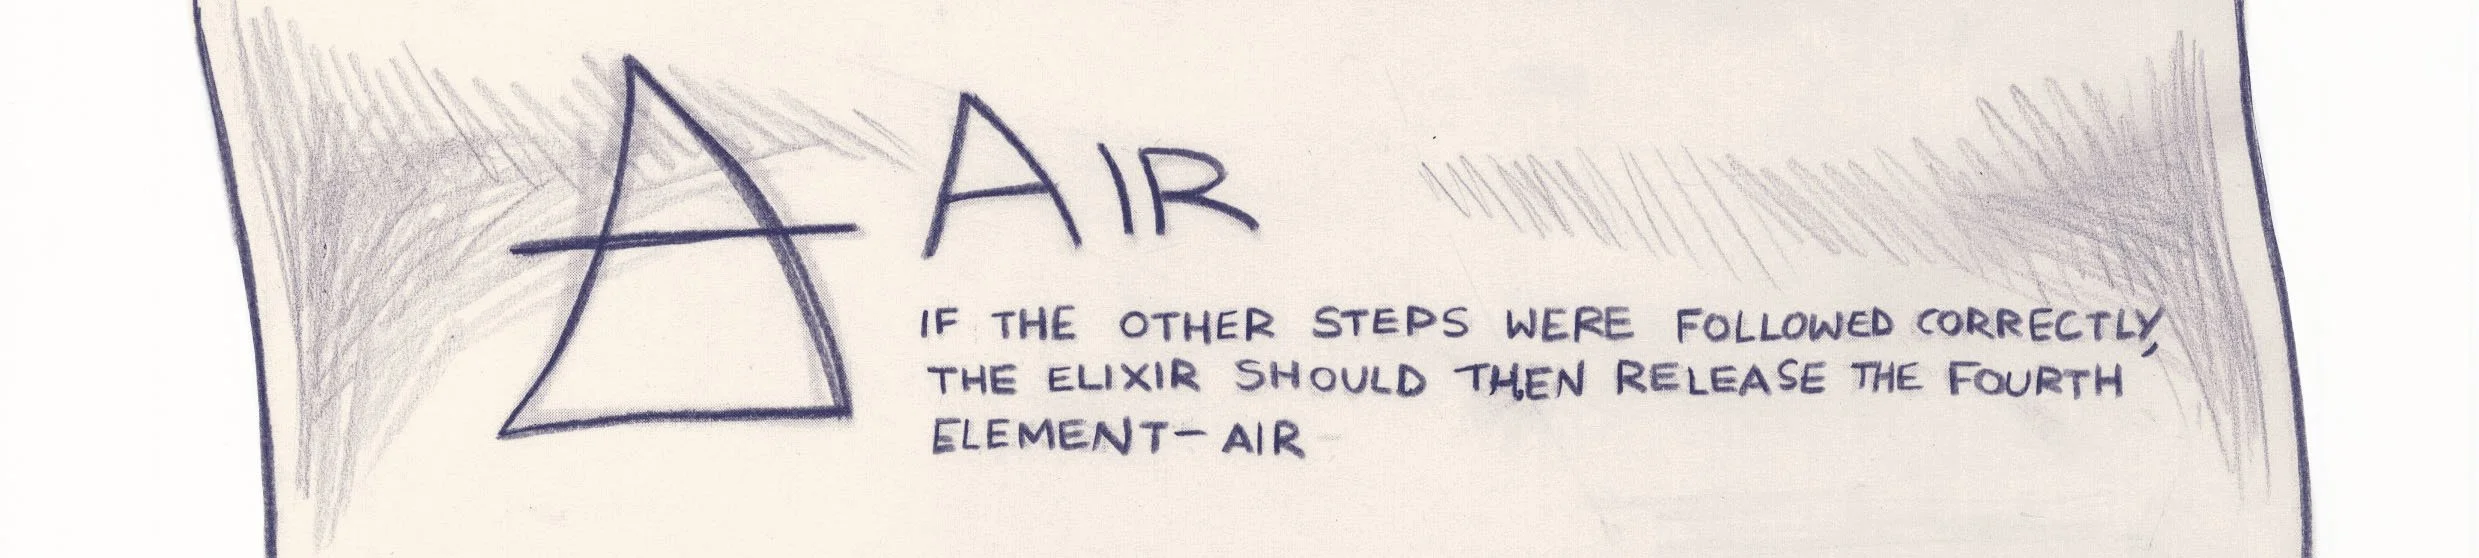 AIR
IF THE OTHER STEPS WERE FOLLOWED CORRECTLY,
THE ELIXIR SHOULD THEN RELEASE THE FOURTH
ELEMENT-AIR